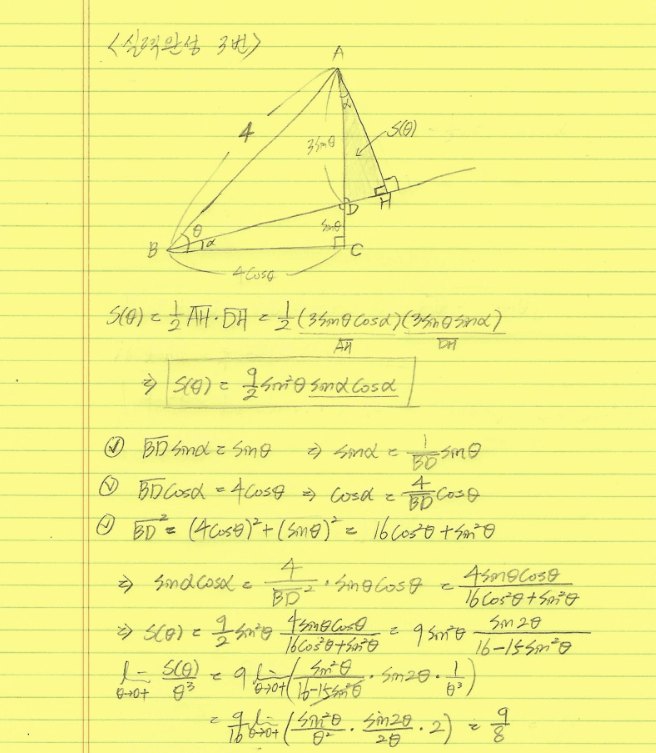 <실력완성 3번>
A
4
α
S(θ)
3sinθ
D
H
θ
sinθ
B
α
C
4cosθ
S(θ) = 1/2 AH·DH = 1/2 (3sinθcosα)(3sinθsinα)
AH DH
⇒ S(θ) = 9/2 sin²θ sinα cosα
✓ BD sinα = sinθ ⇒ sinα = 1/BD sinθ
✓ BD cosα = 4cosθ ⇒ cosα = 4/BD cosθ
✓ BD² = (4cosθ)² + (sinθ)² = 16cos²θ + sin²θ
⇒ sinα cosα = 4/BD² · sinθcosθ = 4sinθcosθ/16cos²θ+sin²θ
⇒ S(θ) = 9/2 sin²θ 4sinθcosθ/16cos²θ+sin²θ = 9 sin²θ sin2θ/16-15sin²θ
lim θ→0+ S(θ)/θ³ = 9 lim θ→0+ (sin²θ/16-15sin²θ · sin2θ · 1/θ³)
= 9/16 lim θ→0+ (sin²θ/θ² · sin2θ/2θ · 2) = 9/8